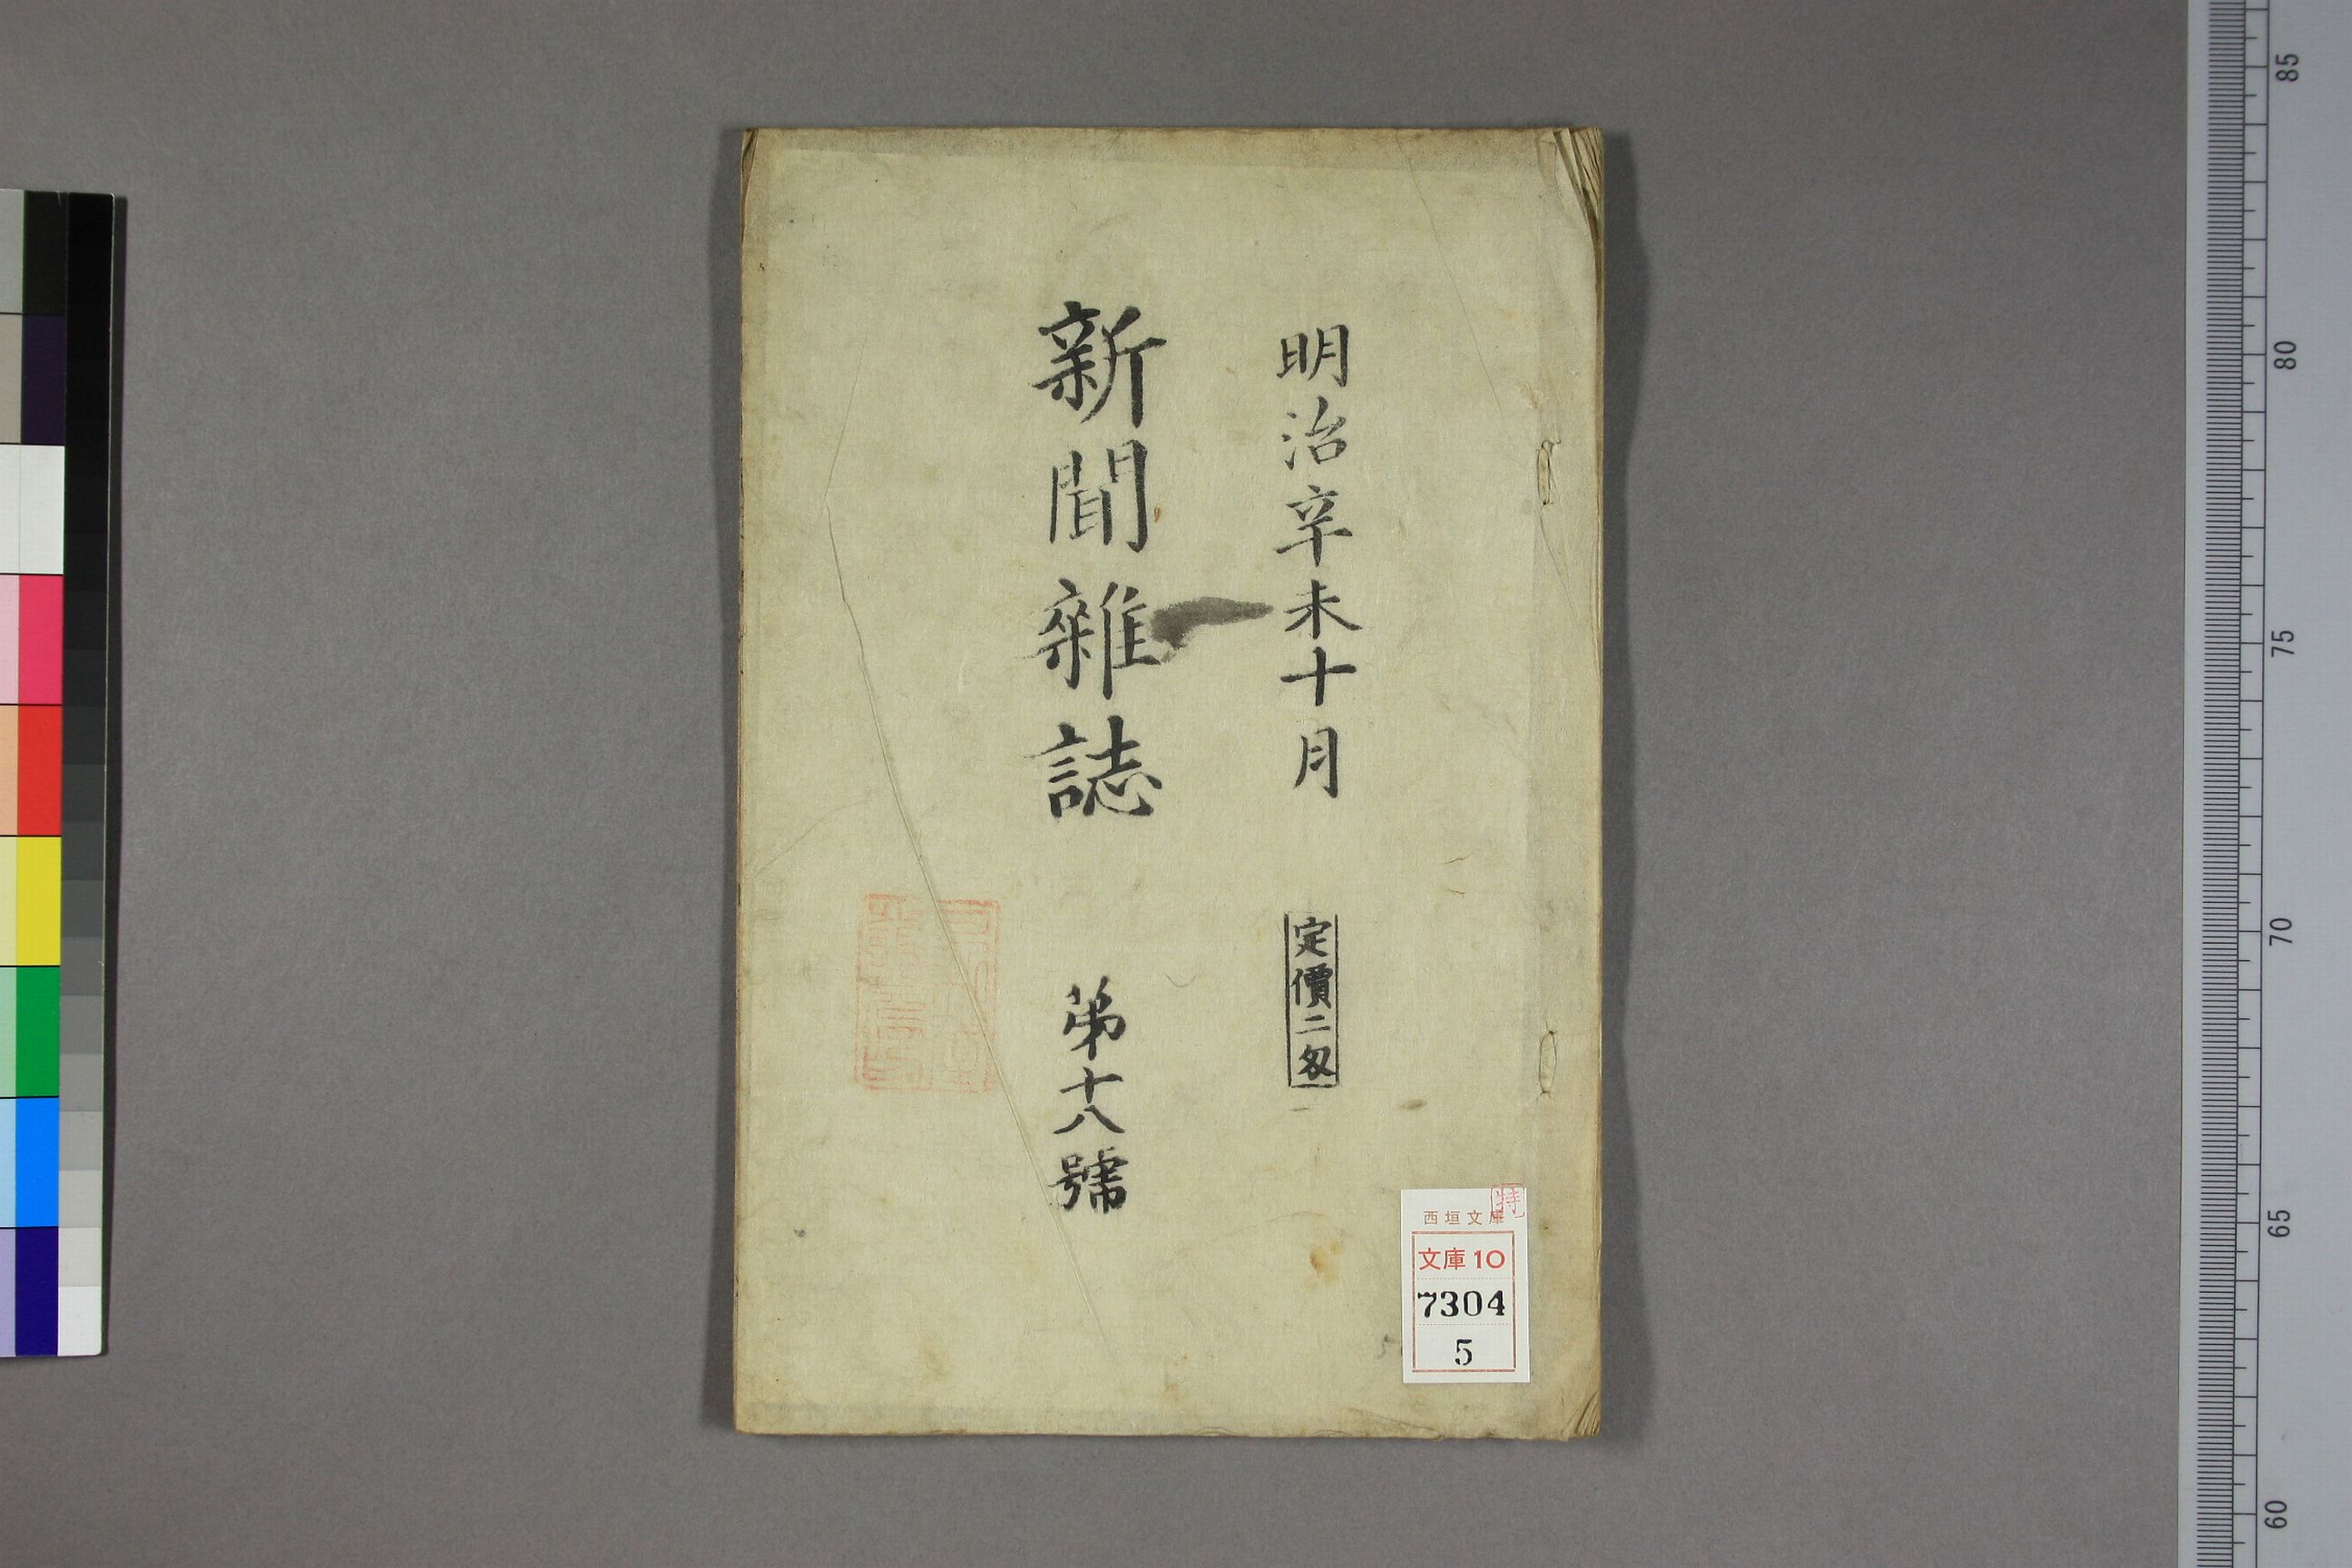 明治辛未十月
定價二匁
新聞雜誌
第十八號
特
西垣文庫
文庫10
7304
5
85
80
75
70
65
60